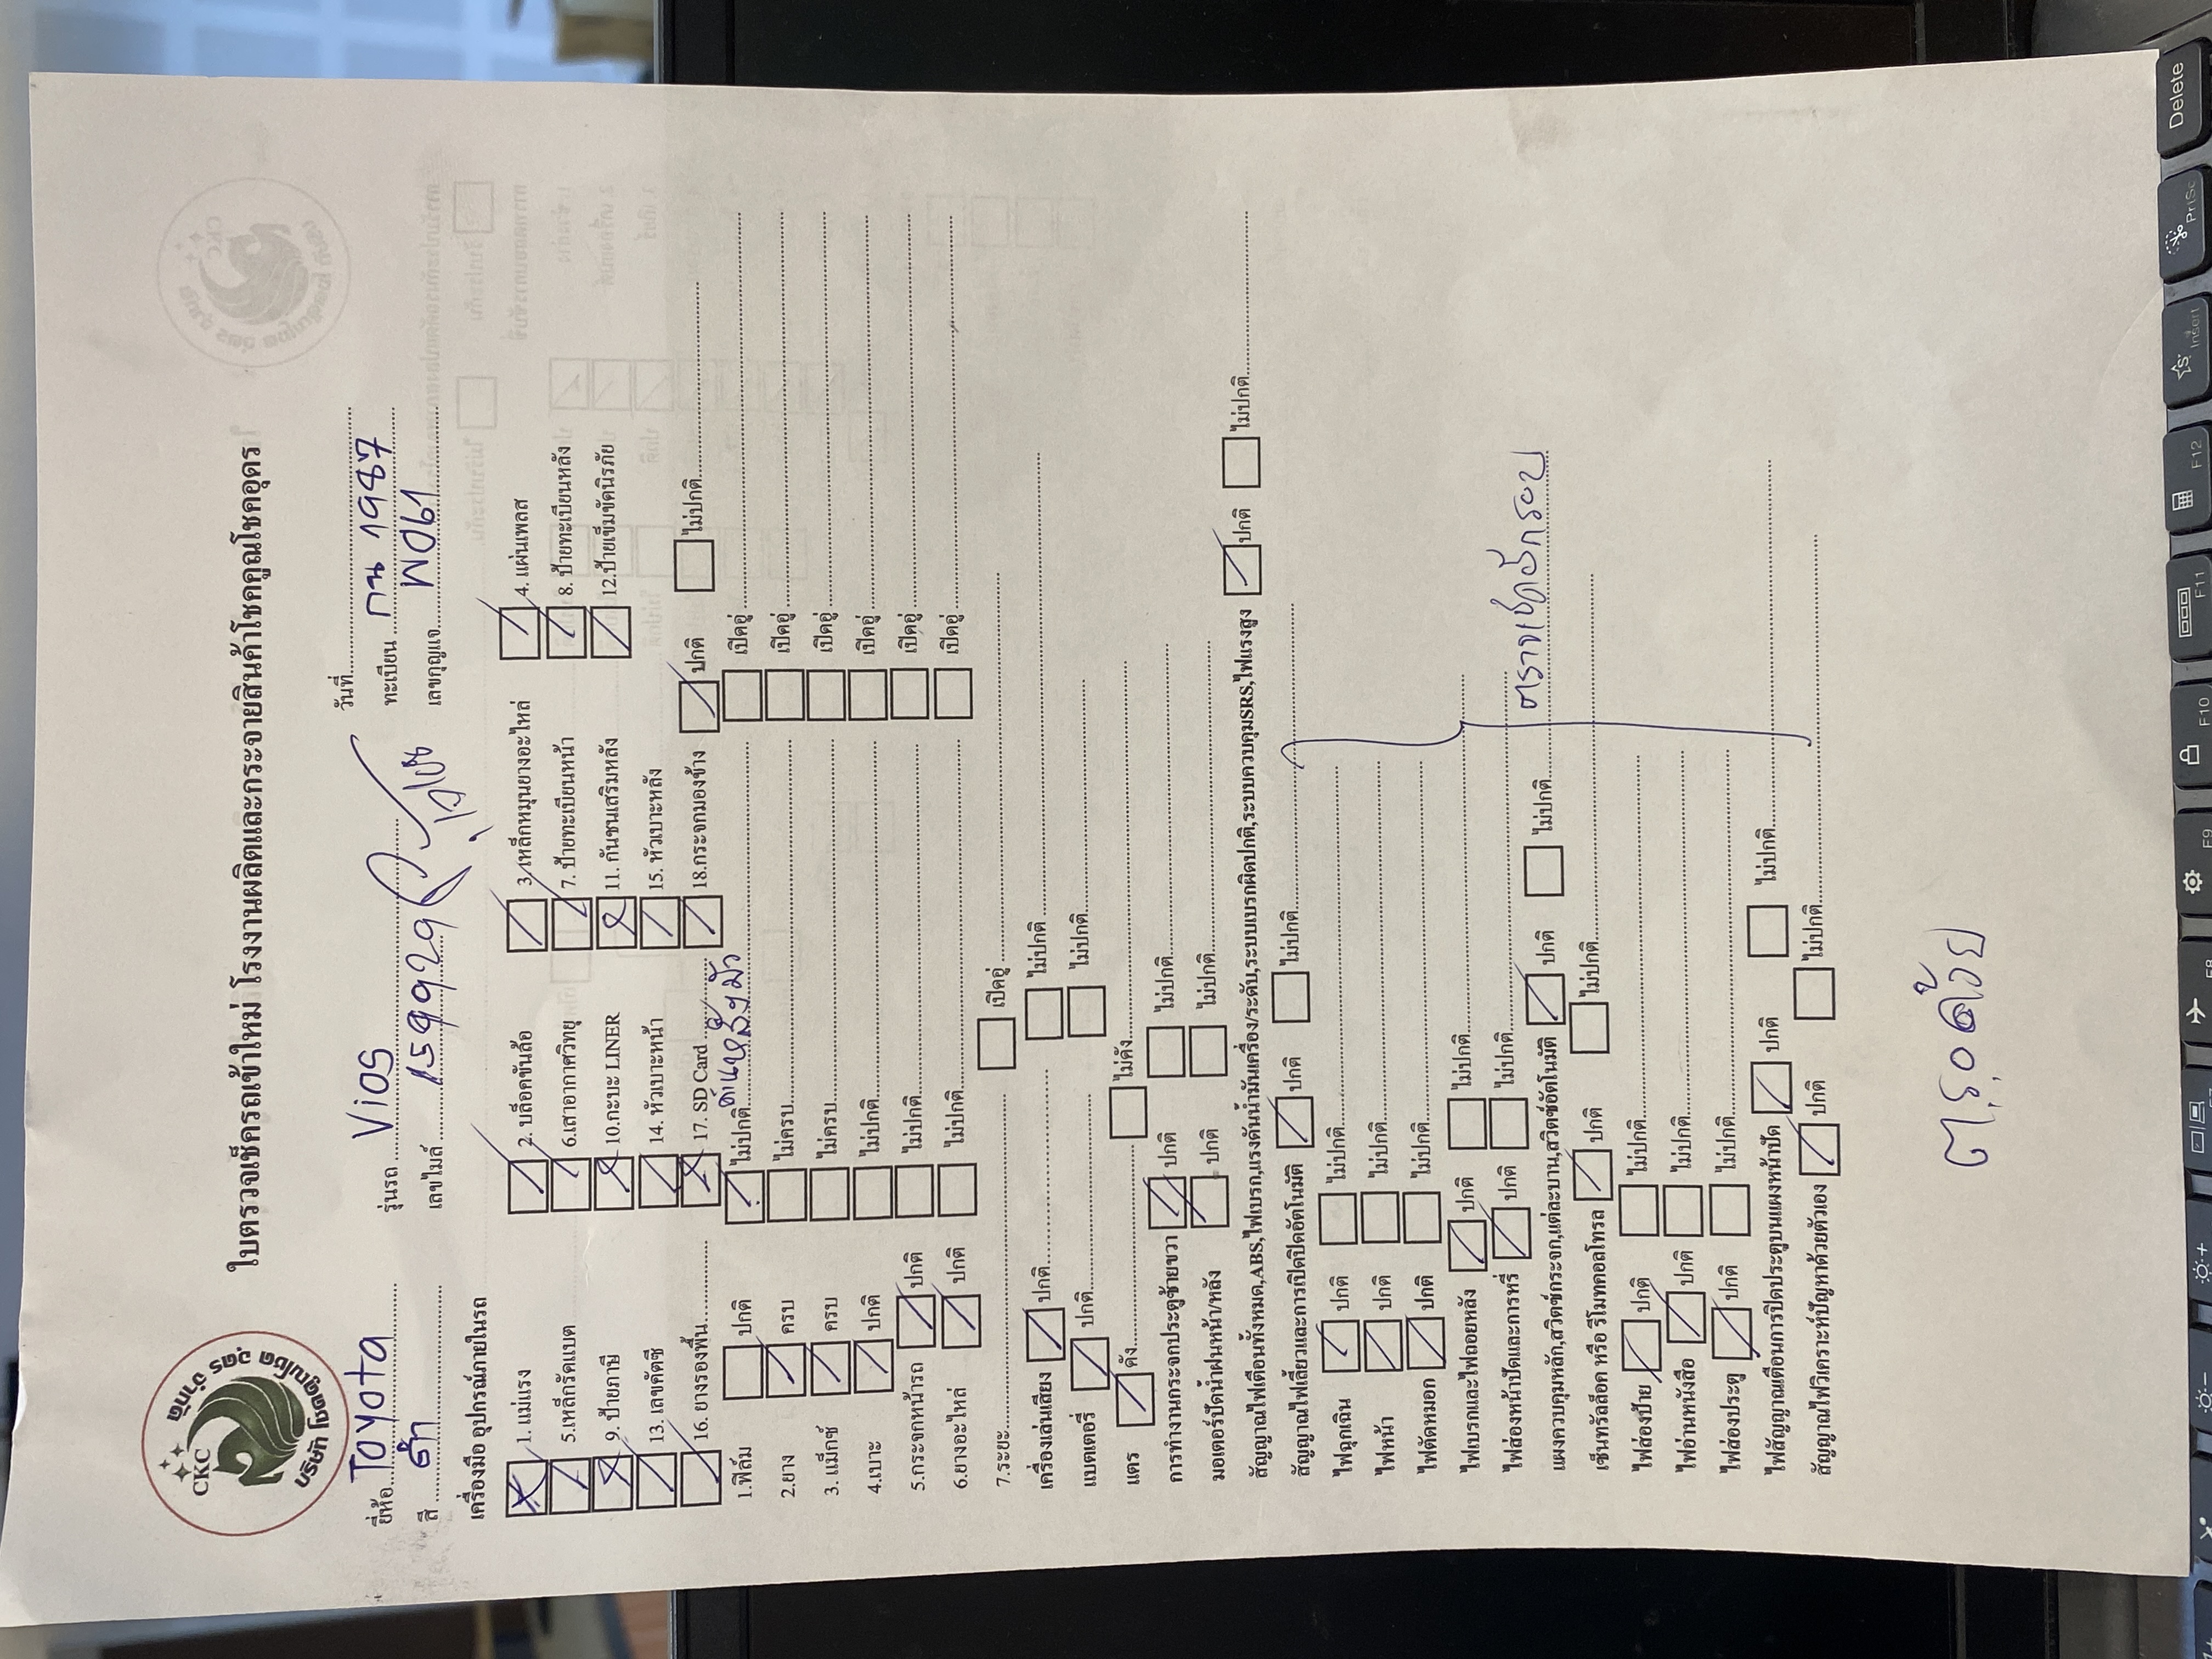 CKC
บริษัท โชคคูณโชค อุดร จำกัด
ใบตรวจเช็ครถเข้าใหม่ โรงงานผลิตและกระจายสินค้าโชคคูณโชคอุดร
วันที่
ยี่ห้อ Toyota รุ่นรถ Vios ทะเบียน กน 1987
สี ดำ เลขไมล์ 159929 เลขกุญแจ M061
เครื่องมือ อุปกรณ์ภายในรถ
1. แม่แรง 2. บล็อคขันล้อ 3.เหล็กหมุนยางอะไหล่ 4. แผ่นเพลส
5.เหล็กรัดแบต 6.เสาอากาศวิทยุ 7. ป้ายทะเบียนหน้า 8. ป้ายทะเบียนหลัง
9. ป้ายภาษี 10.กะบะ LINER 11. กันชนเสริมหลัง 12.ป้ายเข็มขัดนิรภัย
13. เลขคัตซี 14. หัวเบาะหน้า 15. หัวเบาะหลัง
16. ยางรองพื้น 17. SD Card 18.กระจกมองข้าง ปกติ ไม่ปกติ
1.ฟิล์ม ปกติ ไม่ปกติ เปิดอู่
2.ยาง ครบ ไม่ครบ เปิดอู่
3. แม็กซ์ ครบ ไม่ครบ เปิดอู่
4.เบาะ ปกติ ไม่ปกติ เปิดอู่
5.กระจกหน้ารถ ปกติ ไม่ปกติ เปิดอู่
6.ยางอะไหล่ ปกติ ไม่ปกติ เปิดอู่
7.ระยะ เปิดอู่
เครื่องเล่นเสียง ปกติ ไม่ปกติ
แบตเตอรี่ ปกติ ไม่ปกติ
แตร ดัง ไม่ดัง
การทำงานกระจกประตูซ้ายขวา ปกติ ไม่ปกติ
มอเตอร์ปัดน้ำฝนหน้า/หลัง ปกติ ไม่ปกติ
สัญญาณไฟเตือนทั้งหมด,ABS,ไฟเบรก,แรงดันน้ำมันเครื่อง/ระดับ,ระบบเบรกผิดปกติ,ระบบควบคุมSRS,ไฟแรงสูง ปกติ ไม่ปกติ
สัญญาณไฟเลี้ยวและการเปิดปิดอัตโนมัติ ปกติ ไม่ปกติ
ไฟฉุกเฉิน ปกติ ไม่ปกติ
ไฟหน้า ปกติ ไม่ปกติ
ไฟตัดหมอก ปกติ ไม่ปกติ
ไฟเบรกและไฟถอยหลัง ปกติ ไม่ปกติ
ไฟส่องหน้าปัดและการหรี่ ปกติ ไม่ปกติ
แผงควบคุมหลัก,สวิตซ์กระจก,แต่ละบาน,สวิตซ์อัตโนมัติ ปกติ ไม่ปกติ
เซ็นทรัลล็อค หรือ รีโมทคอลโทรล ปกติ ไม่ปกติ
ไฟส่องป้าย ปกติ ไม่ปกติ
ไฟอ่านหนังสือ ปกติ ไม่ปกติ
ไฟส่องประตู ปกติ ไม่ปกติ
ไฟสัญญาณเตือนการปิดประตูบนแผงหน้าปัด ปกติ ไม่ปกติ
สัญญาณไฟวิเคราะห์ปัญหาด้วยตัวเอง ปกติ ไม่ปกติ
Delete
PrtSc
Insert
F12
F11
F10
F9
F8